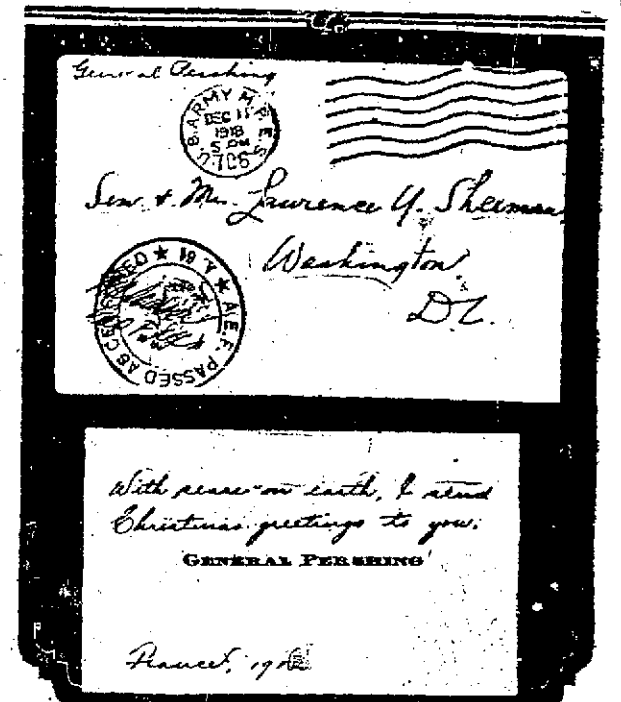 General Pershing
U.S. ARMY M.P.E.S.
DEC 11
1918
5 PM
Sen. & Mrs. Lawrence Y. Sherman
Washington
D.C.
A.E.F. PASSED AS CENSORED
With peace on earth, I send
Christmas greetings to you.
GENERAL PERSHING
France,